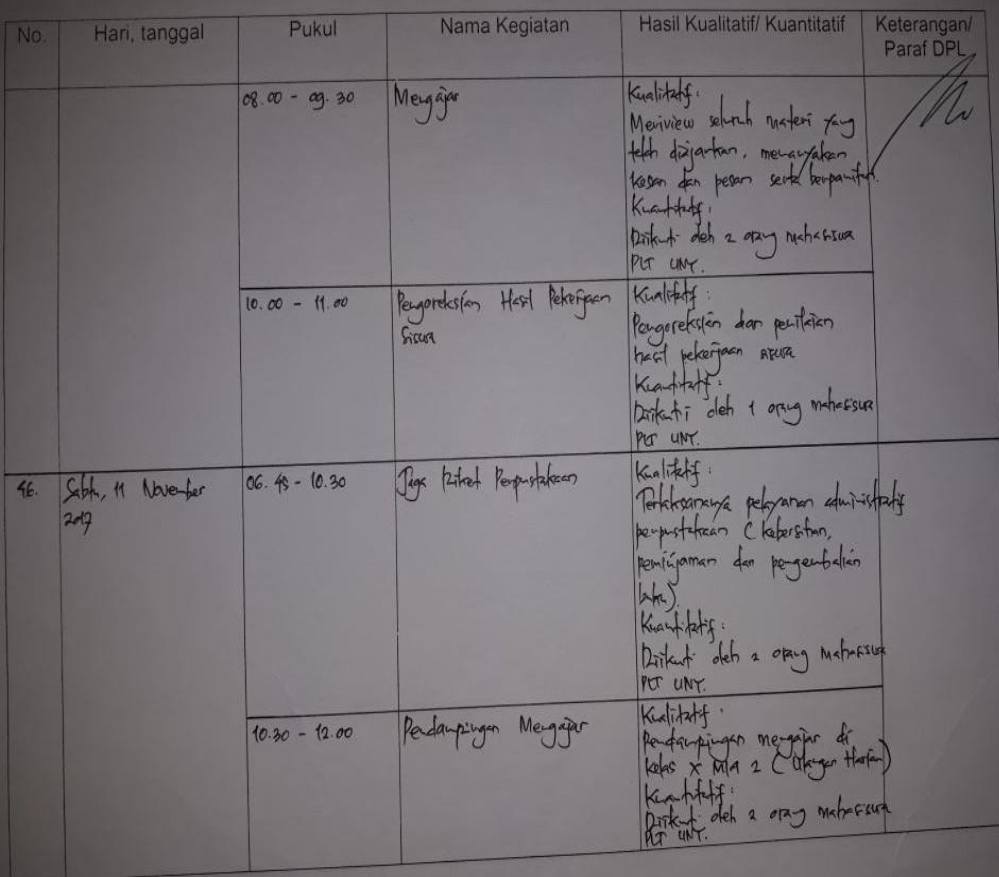 No. Hari, tanggal Pukul Nama Kegiatan Hasil Kualitatif/ Kuantitatif Keterangan/
Paraf DPL
08.00 - 09.30 Mengajar Kualitatif :
Meriview seluruh materi yang
telah diajarkan, menanyakan
kesan dan pesan serta berpamitan.
Kuantitatif :
Diikuti oleh 2 orang mahasiswa
PLT UNY.
10.00 - 11.00 Pengoreksian Hasil Pekerjaan Kualitatif :
Siswa Pengoreksian dan penilaian
hasil pekerjaan siswa
Kuantitatif :
Diikuti oleh 1 orang mahasiswa
PLT UNY.
46. Sabtu, 11 November 06.45 - 10.30 Jaga Piket Perpustakaan Kualitatif :
2017 Terlaksananya pelayanan administratif
perpustakaan (kebersihan,
peminjaman dan pengembalian
buku).
Kuantitatif :
Diikuti oleh 2 orang mahasiswa
PLT UNY.
10.30 - 12.00 Pendampingan Mengajar Kualitatif :
Pendampingan mengajar di
kelas X MIA 2 (Ulangan Harian)
Kuantitatif :
Diikuti oleh 2 orang mahasiswa
PLT UNY.